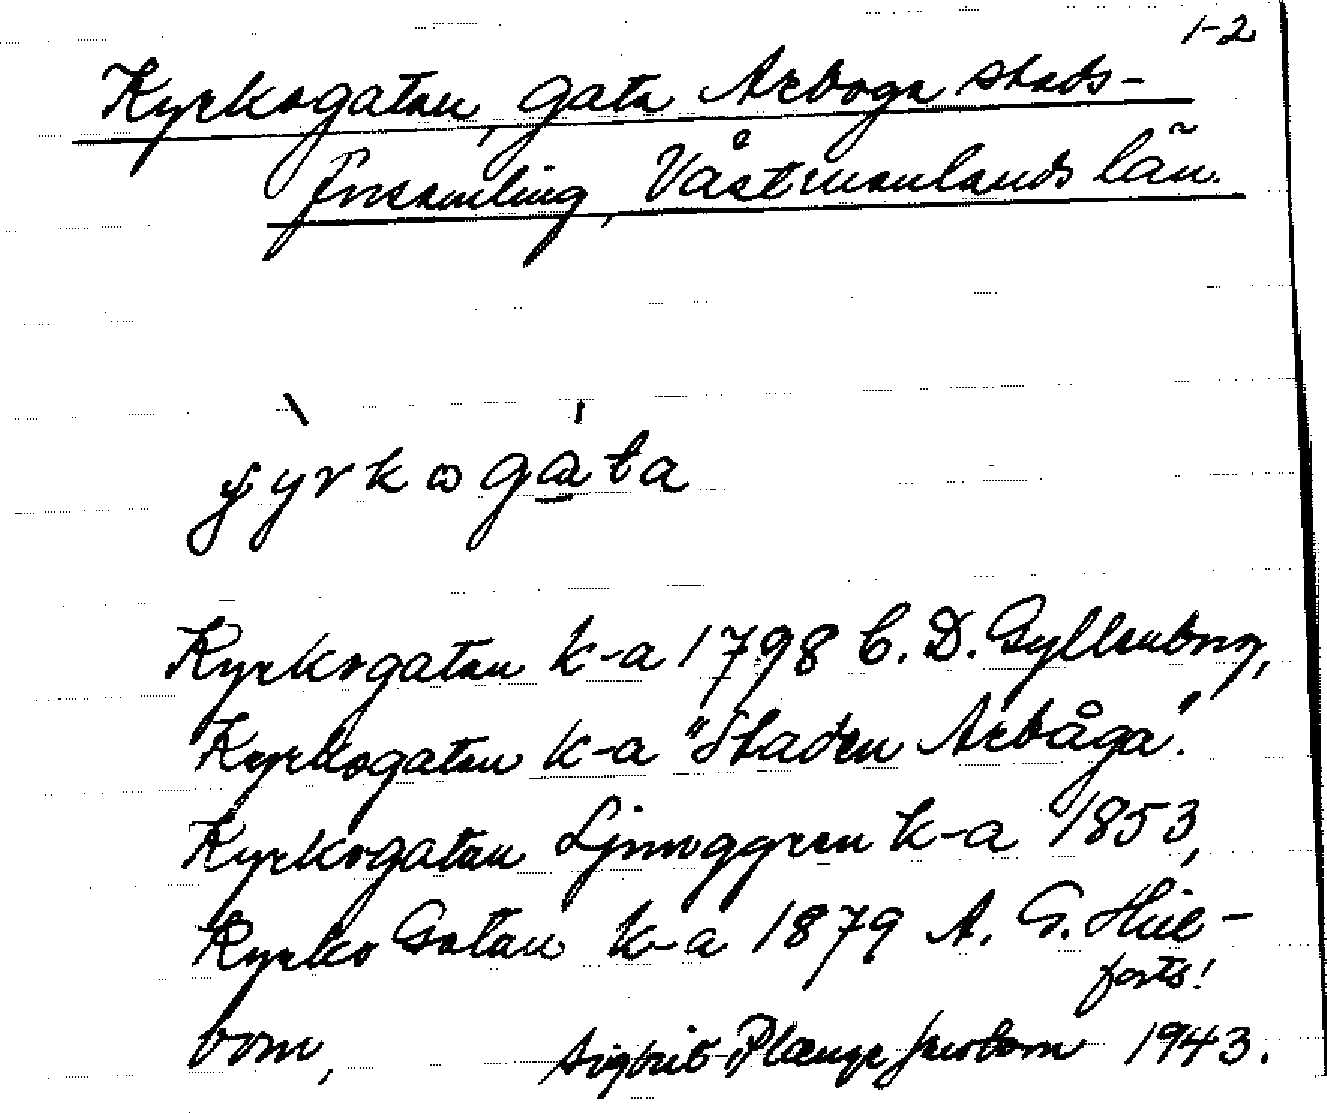 1-2
Kyrkogatan, gata Arboga stads-
församling, Västmanlands län.
Kyrkogatan k-a 1798 C. D. Gyllenborg,
Kyrkogatan k-a "Staden Arbåga".
Kyrkogatan Ljunggren k-a 1853,
Kyrko Gatan k-a 1879 A. G. Hül-
forts!
bom, 1943.